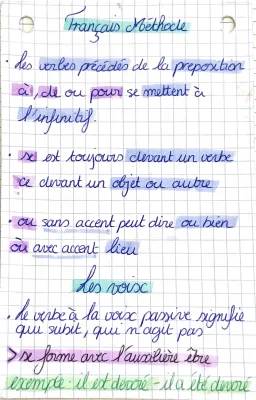 Français Méthode
• Les verbes précédés de la preposition
à, de ou pour se mettent à
l'infinitif.
• se est toujours devant un verbe
ce devant un objet ou autre
• ou sans accent peut dire ou bien
où avec accent lieu
Les voix
• Le verbe à la voix passive signifie
qui subit, qui n'agit pas
> se forme avec l'auxilière être
exemple : il est devoré - il a été devoré